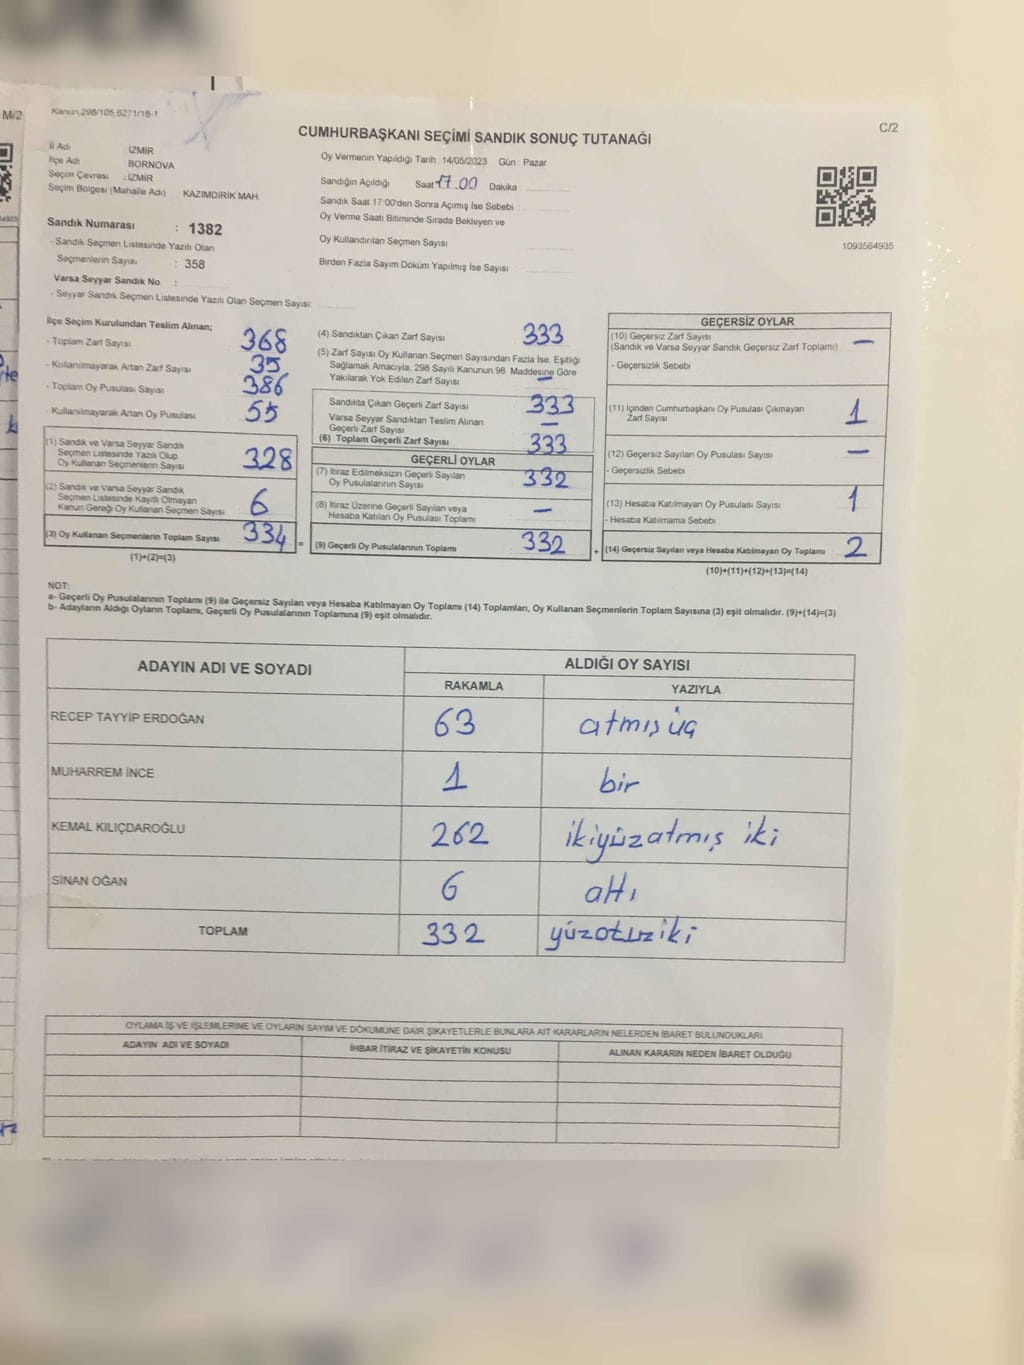 M/2
Kanun,298/105,6271/18-1
C/2
CUMHURBAŞKANI SEÇİMİ SANDIK SONUÇ TUTANAĞI
İl Adı İZMİR
İlçe Adı BORNOVA
Seçim Çevresi : İZMİR
Seçim Bölgesi (Mahalle Adı) : KAZIMDİRİK MAH.
Oy Vermenin Yapıldığı Tarih :14/05/2023 Gün : Pazar
Sandığın Açıldığı Saat 17.00 Dakika
Sandık Saat 17:00'den Sonra Açılmış İse Sebebi
Oy Verme Saati Bitiminde Sırada Bekleyen ve
Oy Kullandırılan Seçmen Sayısı
Birden Fazla Sayım Döküm Yapılmış İse Sayısı
1093584935
Sandık Numarası : 1382
- Sandık Seçmen Listesinde Yazılı Olan
Seçmenlerin Sayısı : 358
Varsa Seyyar Sandık No :
- Seyyar Sandık Seçmen Listesinde Yazılı Olan Seçmen Sayısı:
İlçe Seçim Kurulundan Teslim Alınan;
- Toplam Zarf Sayısı 368
- Kullanılmayarak Artan Zarf Sayısı 35
- Toplam Oy Pusulası Sayısı 386
- Kullanılmayarak Artan Oy Pusulası 55
(1) Sandık ve Varsa Seyyar Sandık
Seçmen Listesinde Yazılı Olup
Oy Kullanan Seçmenlerin Sayısı 328
(2) Sandık ve Varsa Seyyar Sandık
Seçmen Listesinde Kayıtlı Olmayan
Kanun Gereği Oy Kullanan Seçmen Sayısı 6
(3) Oy Kullanan Seçmenlerin Toplam Sayısı 334 =
(1)+(2)=(3)
(4) Sandıktan Çıkan Zarf Sayısı 333
(5) Zarf Sayısı Oy Kullanan Seçmen Sayısından Fazla İse, Eşitliği
Sağlamak Amacıyla, 298 Sayılı Kanunun 98. Maddesine Göre
Yakılarak Yok Edilen Zarf Sayısı —
Sandıkta Çıkan Geçerli Zarf Sayısı 333
Varsa Seyyar Sandıktan Teslim Alınan
Geçerli Zarf Sayısı —
(6) Toplam Geçerli Zarf Sayısı 333
GEÇERLİ OYLAR
(7) İtiraz Edilmeksizin Geçerli Sayılan
Oy Pusulalarının Sayısı 332
(8) İtiraz Üzerine Geçerli Sayılan veya
Hesaba Katılan Oy Pusulası Toplamı —
(9) Geçerli Oy Pusulalarının Toplamı 332 +
GEÇERSİZ OYLAR
(10) Geçersiz Zarf Sayısı —
(Sandık ve Varsa Seyyar Sandık Geçersiz Zarf Toplamı)
- Geçersizlik Sebebi
(11) İçinden Cumhurbaşkanı Oy Pusulası Çıkmayan
Zarf Sayısı 1
(12) Geçersiz Sayılan Oy Pusulası Sayısı —
- Geçersizlik Sebebi
(13) Hesaba Katılmayan Oy Pusulası Sayısı 1
- Hesaba Katılmama Sebebi
(14) Geçersiz Sayılan veya Hesaba Katılmayan Oy Toplamı 2
(10)+(11)+(12)+(13)=(14)
NOT:
a- Geçerli Oy Pusulalarının Toplamı (9) ile Geçersiz Sayılan veya Hesaba Katılmayan Oy Toplamı (14) Toplamları, Oy Kullanan Seçmenlerin Toplam Sayısına (3) eşit olmalıdır. (9)+(14)=(3)
b- Adayların Aldığı Oyların Toplamı, Geçerli Oy Pusulalarının Toplamına (9) eşit olmalıdır.
ADAYIN ADI VE SOYADI ALDIĞI OY SAYISI
RAKAMLA YAZIYLA
RECEP TAYYİP ERDOĞAN 63 atmış üç
MUHARREM İNCE 1 bir
KEMAL KILIÇDAROĞLU 262 ikiyüzatmış iki
SİNAN OĞAN 6 altı
TOPLAM 332 yüzotuziki
OYLAMA İŞ VE İŞLEMLERİNE VE OYLARIN SAYIM VE DÖKÜMÜNE DAİR ŞİKAYETLERLE BUNLARA AİT KARARLARIN NELERDEN İBARET BULUNDUKLARI
ADAYIN ADI VE SOYADI İHBAR İTİRAZ VE ŞİKAYETİN KONUSU ALINAN KARARIN NEDEN İBARET OLDUĞU